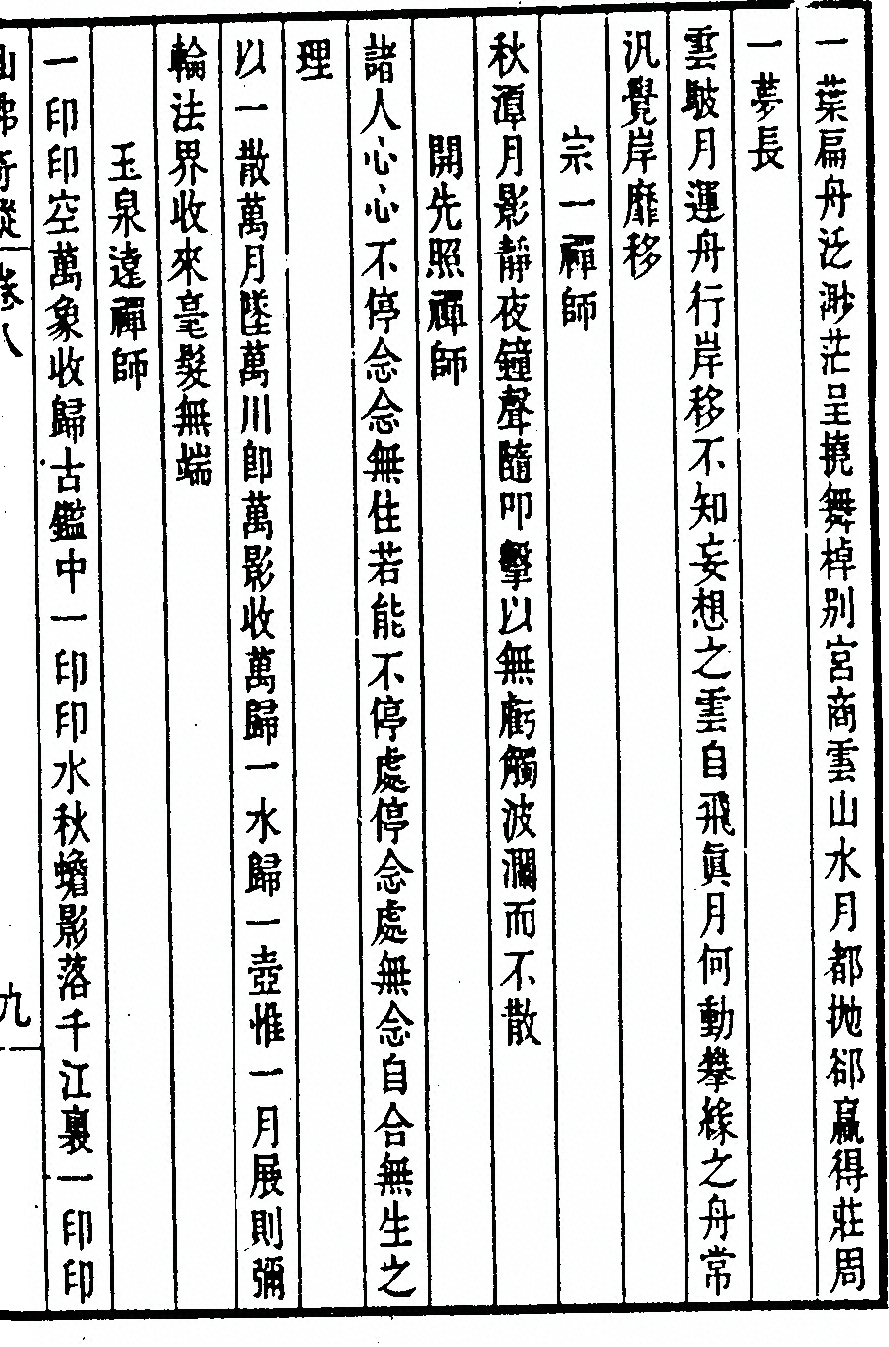 一葉扁舟泛渺茫呈橈舞棹别宮商雲山水月都抛郤贏得莊周
一夢長
雲駛月運舟行岸移不知妄想之雲自飛眞月何動攀緣之舟常
汎覺岸靡移
宗一禪師
秋潭月影靜夜鐘聲隨叩擊以無虧觸波瀾而不散
開先照禪師
諸人心心不停念念無住若能不停處停念處無念自合無生之
理
以一散萬月墜萬川卽萬影收萬歸一水歸一壺惟一月展則彌
輪法界收來毫髮無端
玉泉逵禪師
一印印空萬象收歸古鑑中一印印水秋蟾影落千江裏一印印
仙佛奇蹤 卷八 九